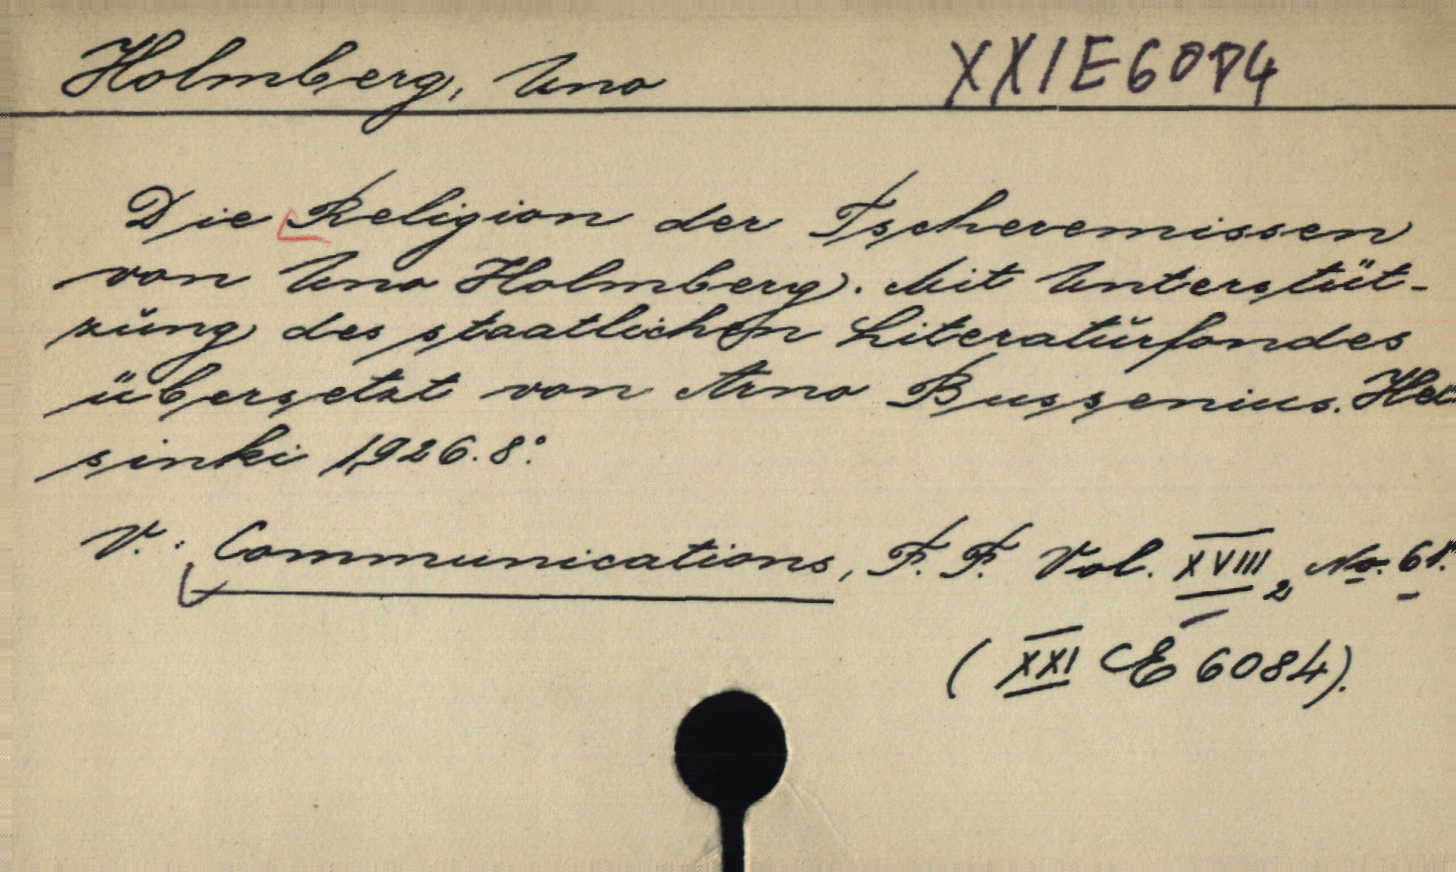 Holmberg, Uno XXIE6084
Die Religion der Tscheremissen
von Uno Holmberg. Mit Unterstüt-
zung des staatlichen Literaturfondes
übersetzt von Arno Bussenius. Hel
sinki 1926. 8°.
V.: Communications, F. F. Vol. XVIII 2, No. 61.
(XXI E 6084).